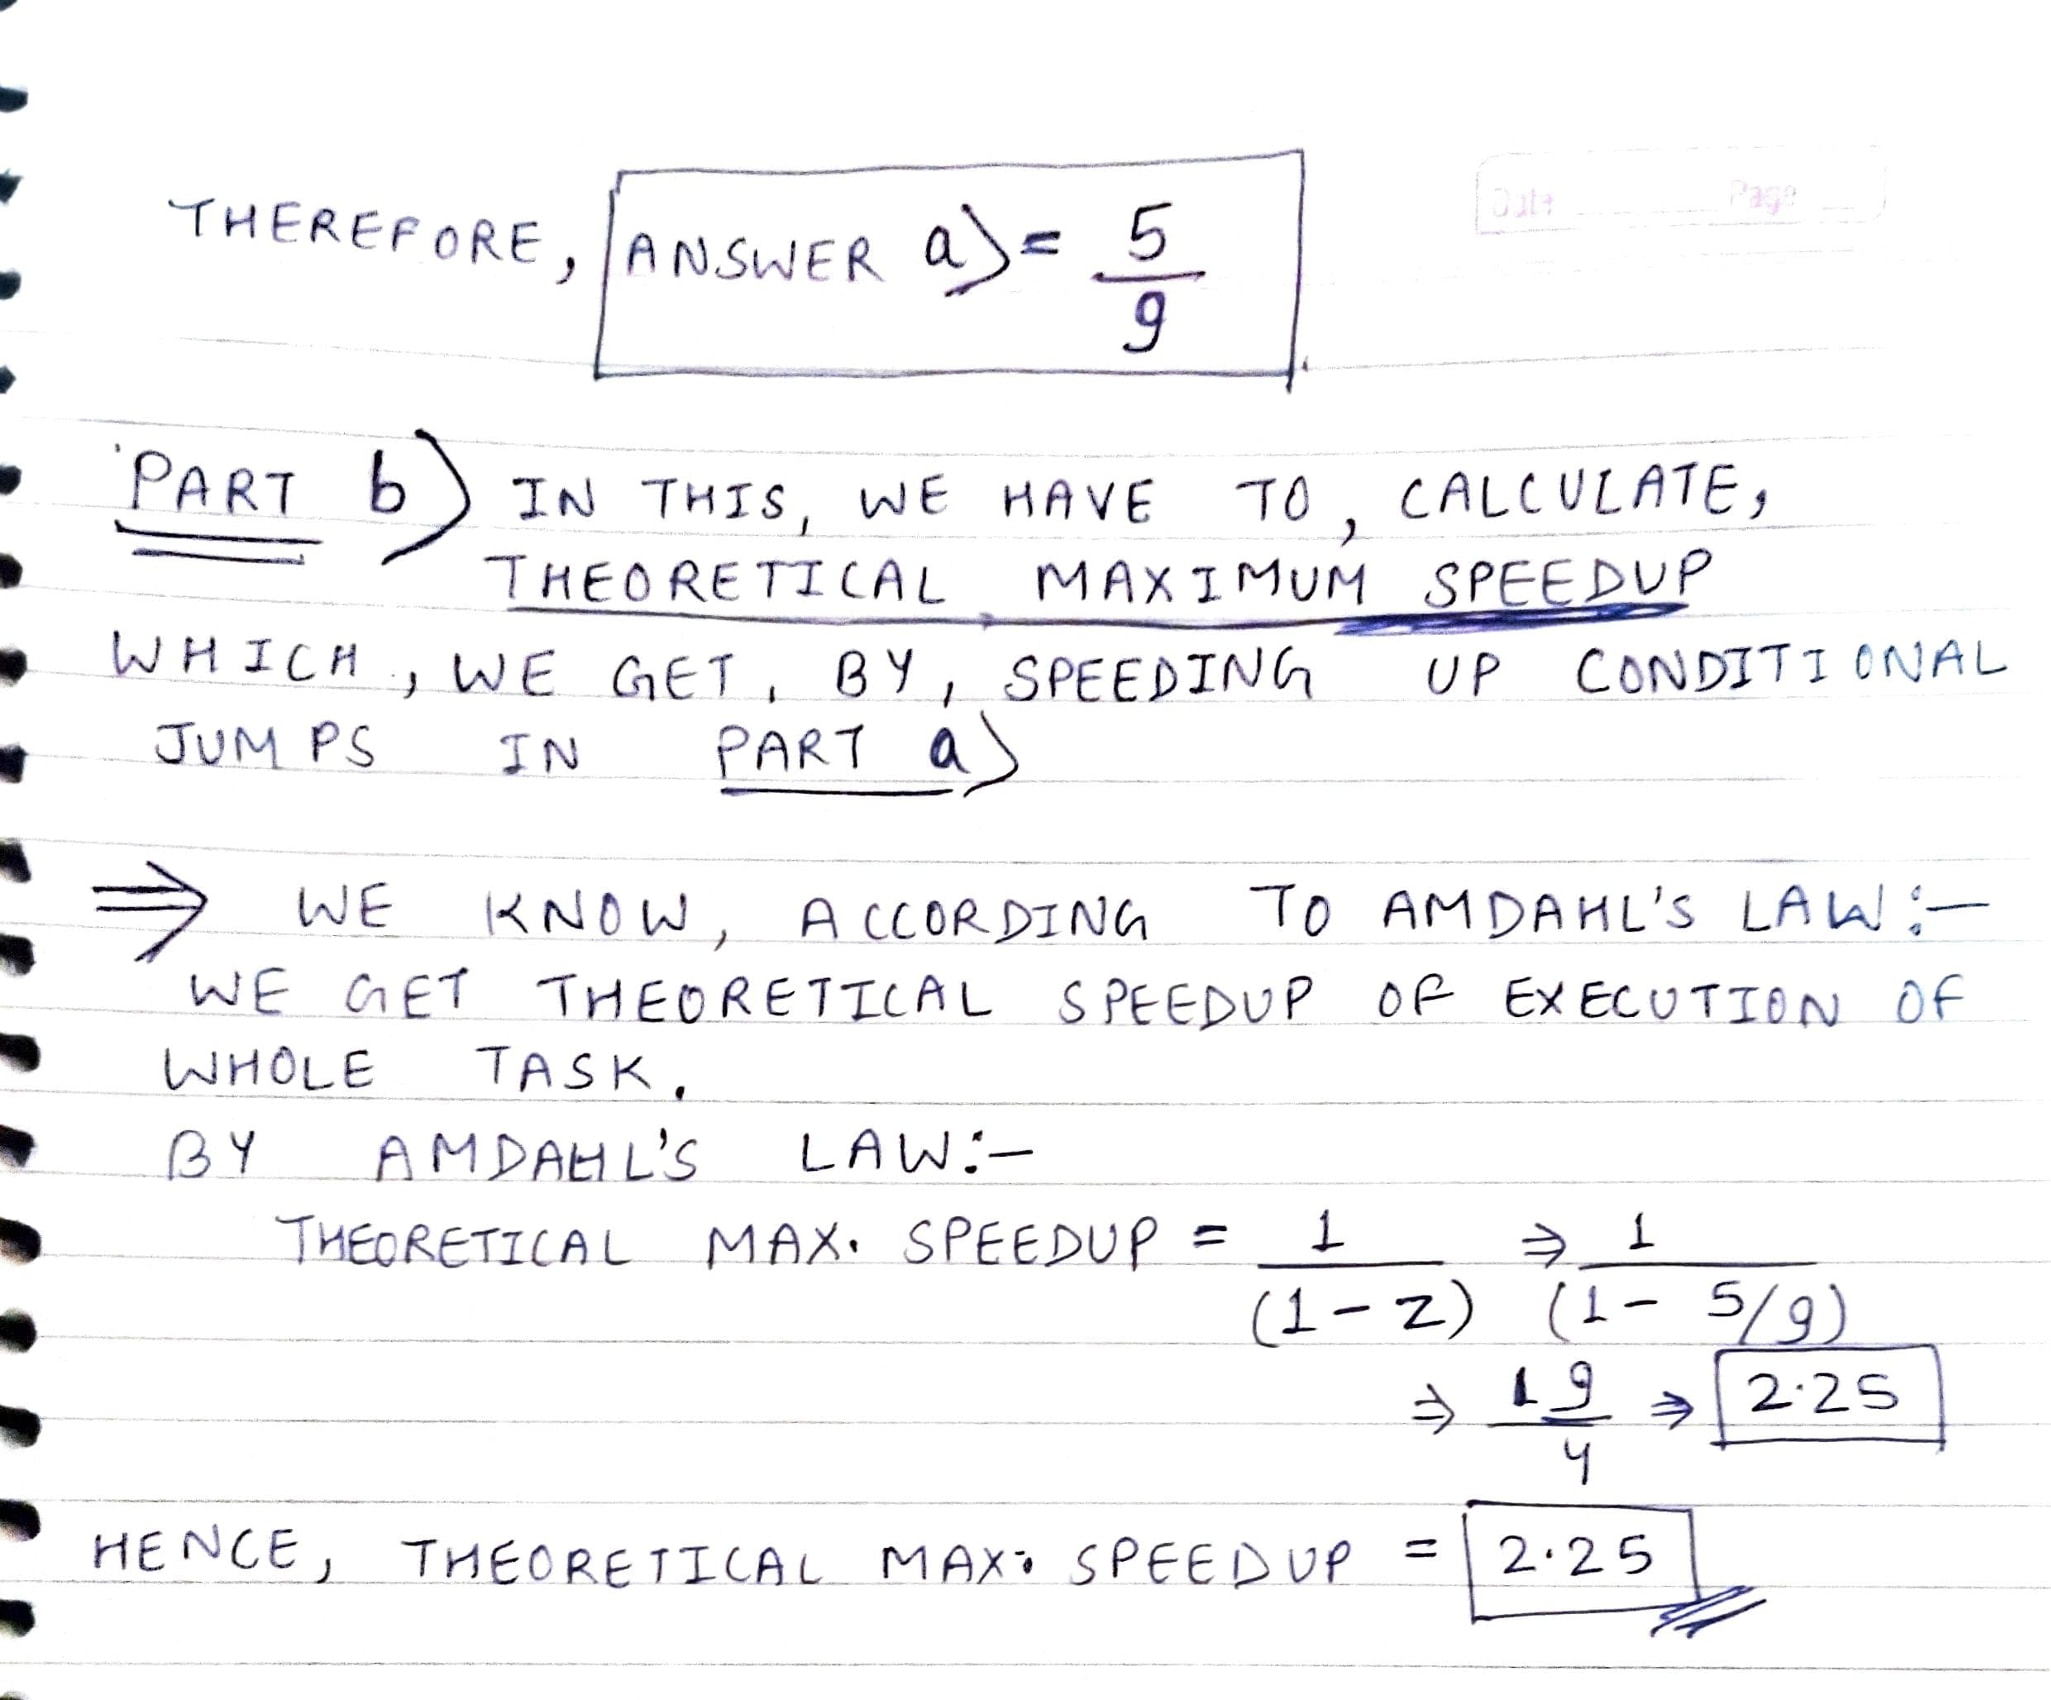 Date Page
THEREFORE, ANSWER a) = 5/9
PART b) IN THIS, WE HAVE TO, CALCULATE,
THEORETICAL MAXIMUM SPEEDUP
WHICH, WE GET, BY, SPEEDING UP CONDITIONAL
JUMPS IN PART a)
⇒ WE KNOW, ACCORDING TO AMDAHL'S LAW:-
WE GET THEORETICAL SPEEDUP OF EXECUTION OF
WHOLE TASK.
BY AMDAHL'S LAW:-
THEORETICAL MAX. SPEEDUP = 1/(1-z) ⇒ 1/(1- 5/9)
⇒ 9/4 ⇒ 2.25
HENCE, THEORETICAL MAX. SPEEDUP = 2.25